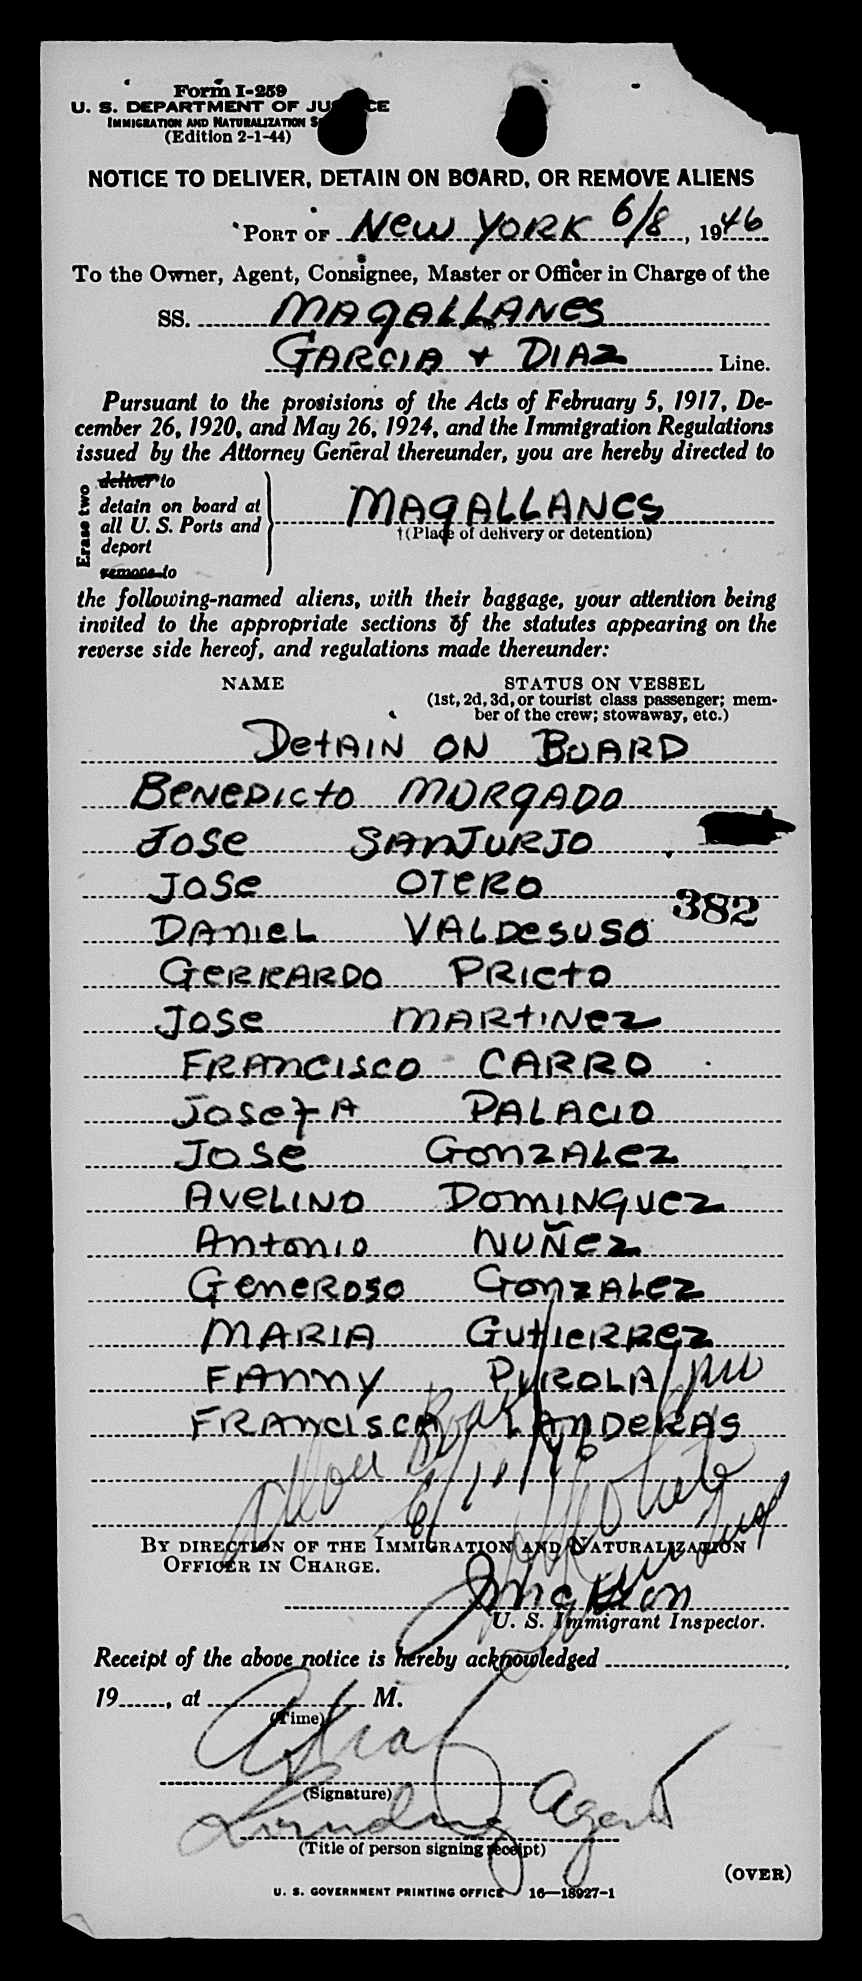 Form I-259
U. S. DEPARTMENT OF JU CE
IMMIGRATION AND NATURALIZATION S
(Edition 2-1-44)
NOTICE TO DELIVER, DETAIN ON BOARD, OR REMOVE ALIENS
PORT OF New YORK 6/8, 1946
To the Owner, Agent, Consignee, Master or Officer in Charge of the
SS. MAGALLANES
GARCIA + DIAZ Line.
Pursuant to the provisions of the Acts of February 5, 1917, De-
cember 26, 1920, and May 26, 1924, and the Immigration Regulations
issued by the Attorney General thereunder, you are hereby directed to
Erase two
deliver to
detain on board at
all U. S. Ports and
deport
remove to
MAGALLANES
†(Place of delivery or detention)
the following-named aliens, with their baggage, your attention being
invited to the appropriate sections of the statutes appearing on the
reverse side hereof, and regulations made thereunder:
NAME STATUS ON VESSEL
(1st, 2d, 3d, or tourist class passenger; mem-
ber of the crew; stowaway, etc.)
DetAIN ON BOARD
BeNeDIcto MORGADO
JOSe SANJURJO
JOSe OTeRO
382
DANIeL VALDesUSO
GeRRARDO PRIeto
JOSe MARtiNez
FRANCISCO CARRO
JOSefA PALACIO
JOSe GONZALez
AVeLINO DOMINGUez
ANtONIO NUÑez
GeNeROSO GONZALez
MARIA GUtIeRRez
FANNY PYROLA
FRANCISCA LANDeRAS
6/11/46
BY DIRECTION OF THE IMMIGRATION AND NATURALIZATION
OFFICER IN CHARGE.
U. S. Immigrant Inspector.
Receipt of the above notice is hereby acknowledged
19, at M.
(Time)
(Signature)
Landing Agent
(Title of person signing receipt)
(OVER)
U. S. GOVERNMENT PRINTING OFFICE 16—18927-1